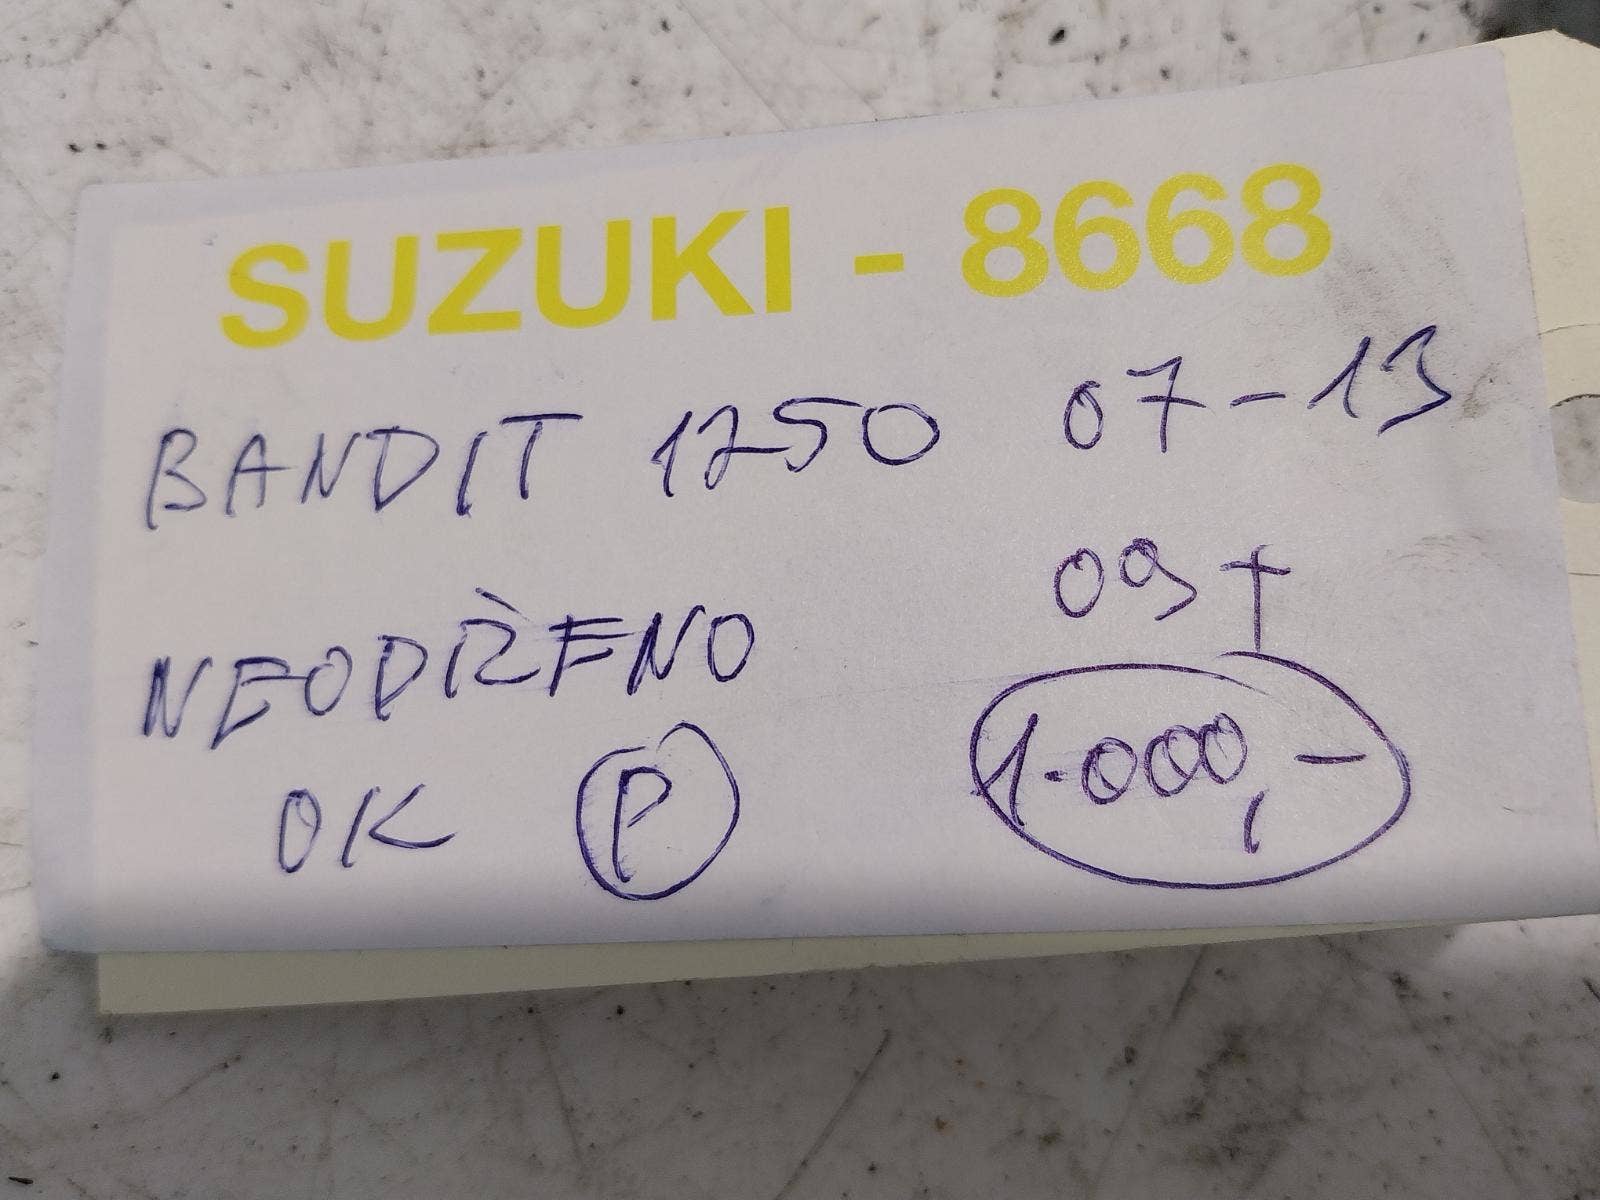 SUZUKI - 8668
BANDIT 1250 07-13
09+
NEODŘENO
OK P
1.000,-